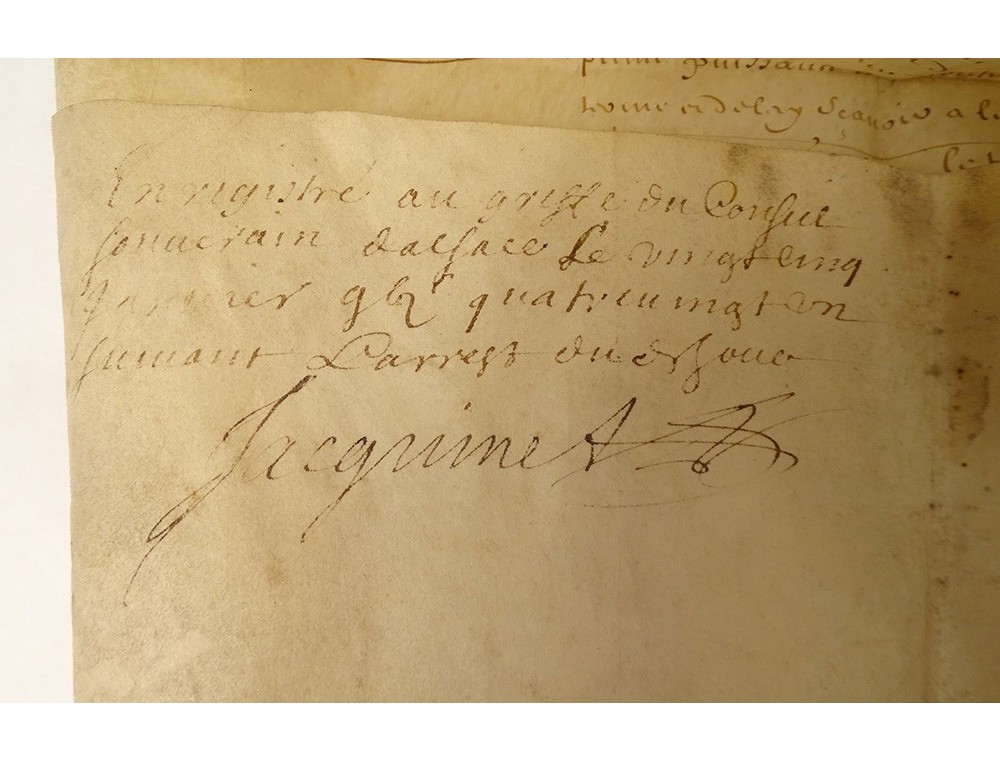 puissan
a le
Enregistré au greffe du Conseil
souuerain dalsace Le vingt cinq
Januier quatreuingt un
suiuant Larrest du
Jacquinet